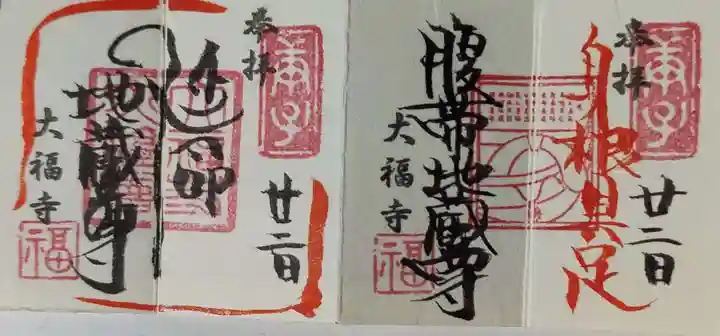 奉拝
庚子
廿二日
延命
地蔵尊
大福寺
福
奉拝
庚子
廿二日
身根具足
腹帯地蔵尊
大福寺
福